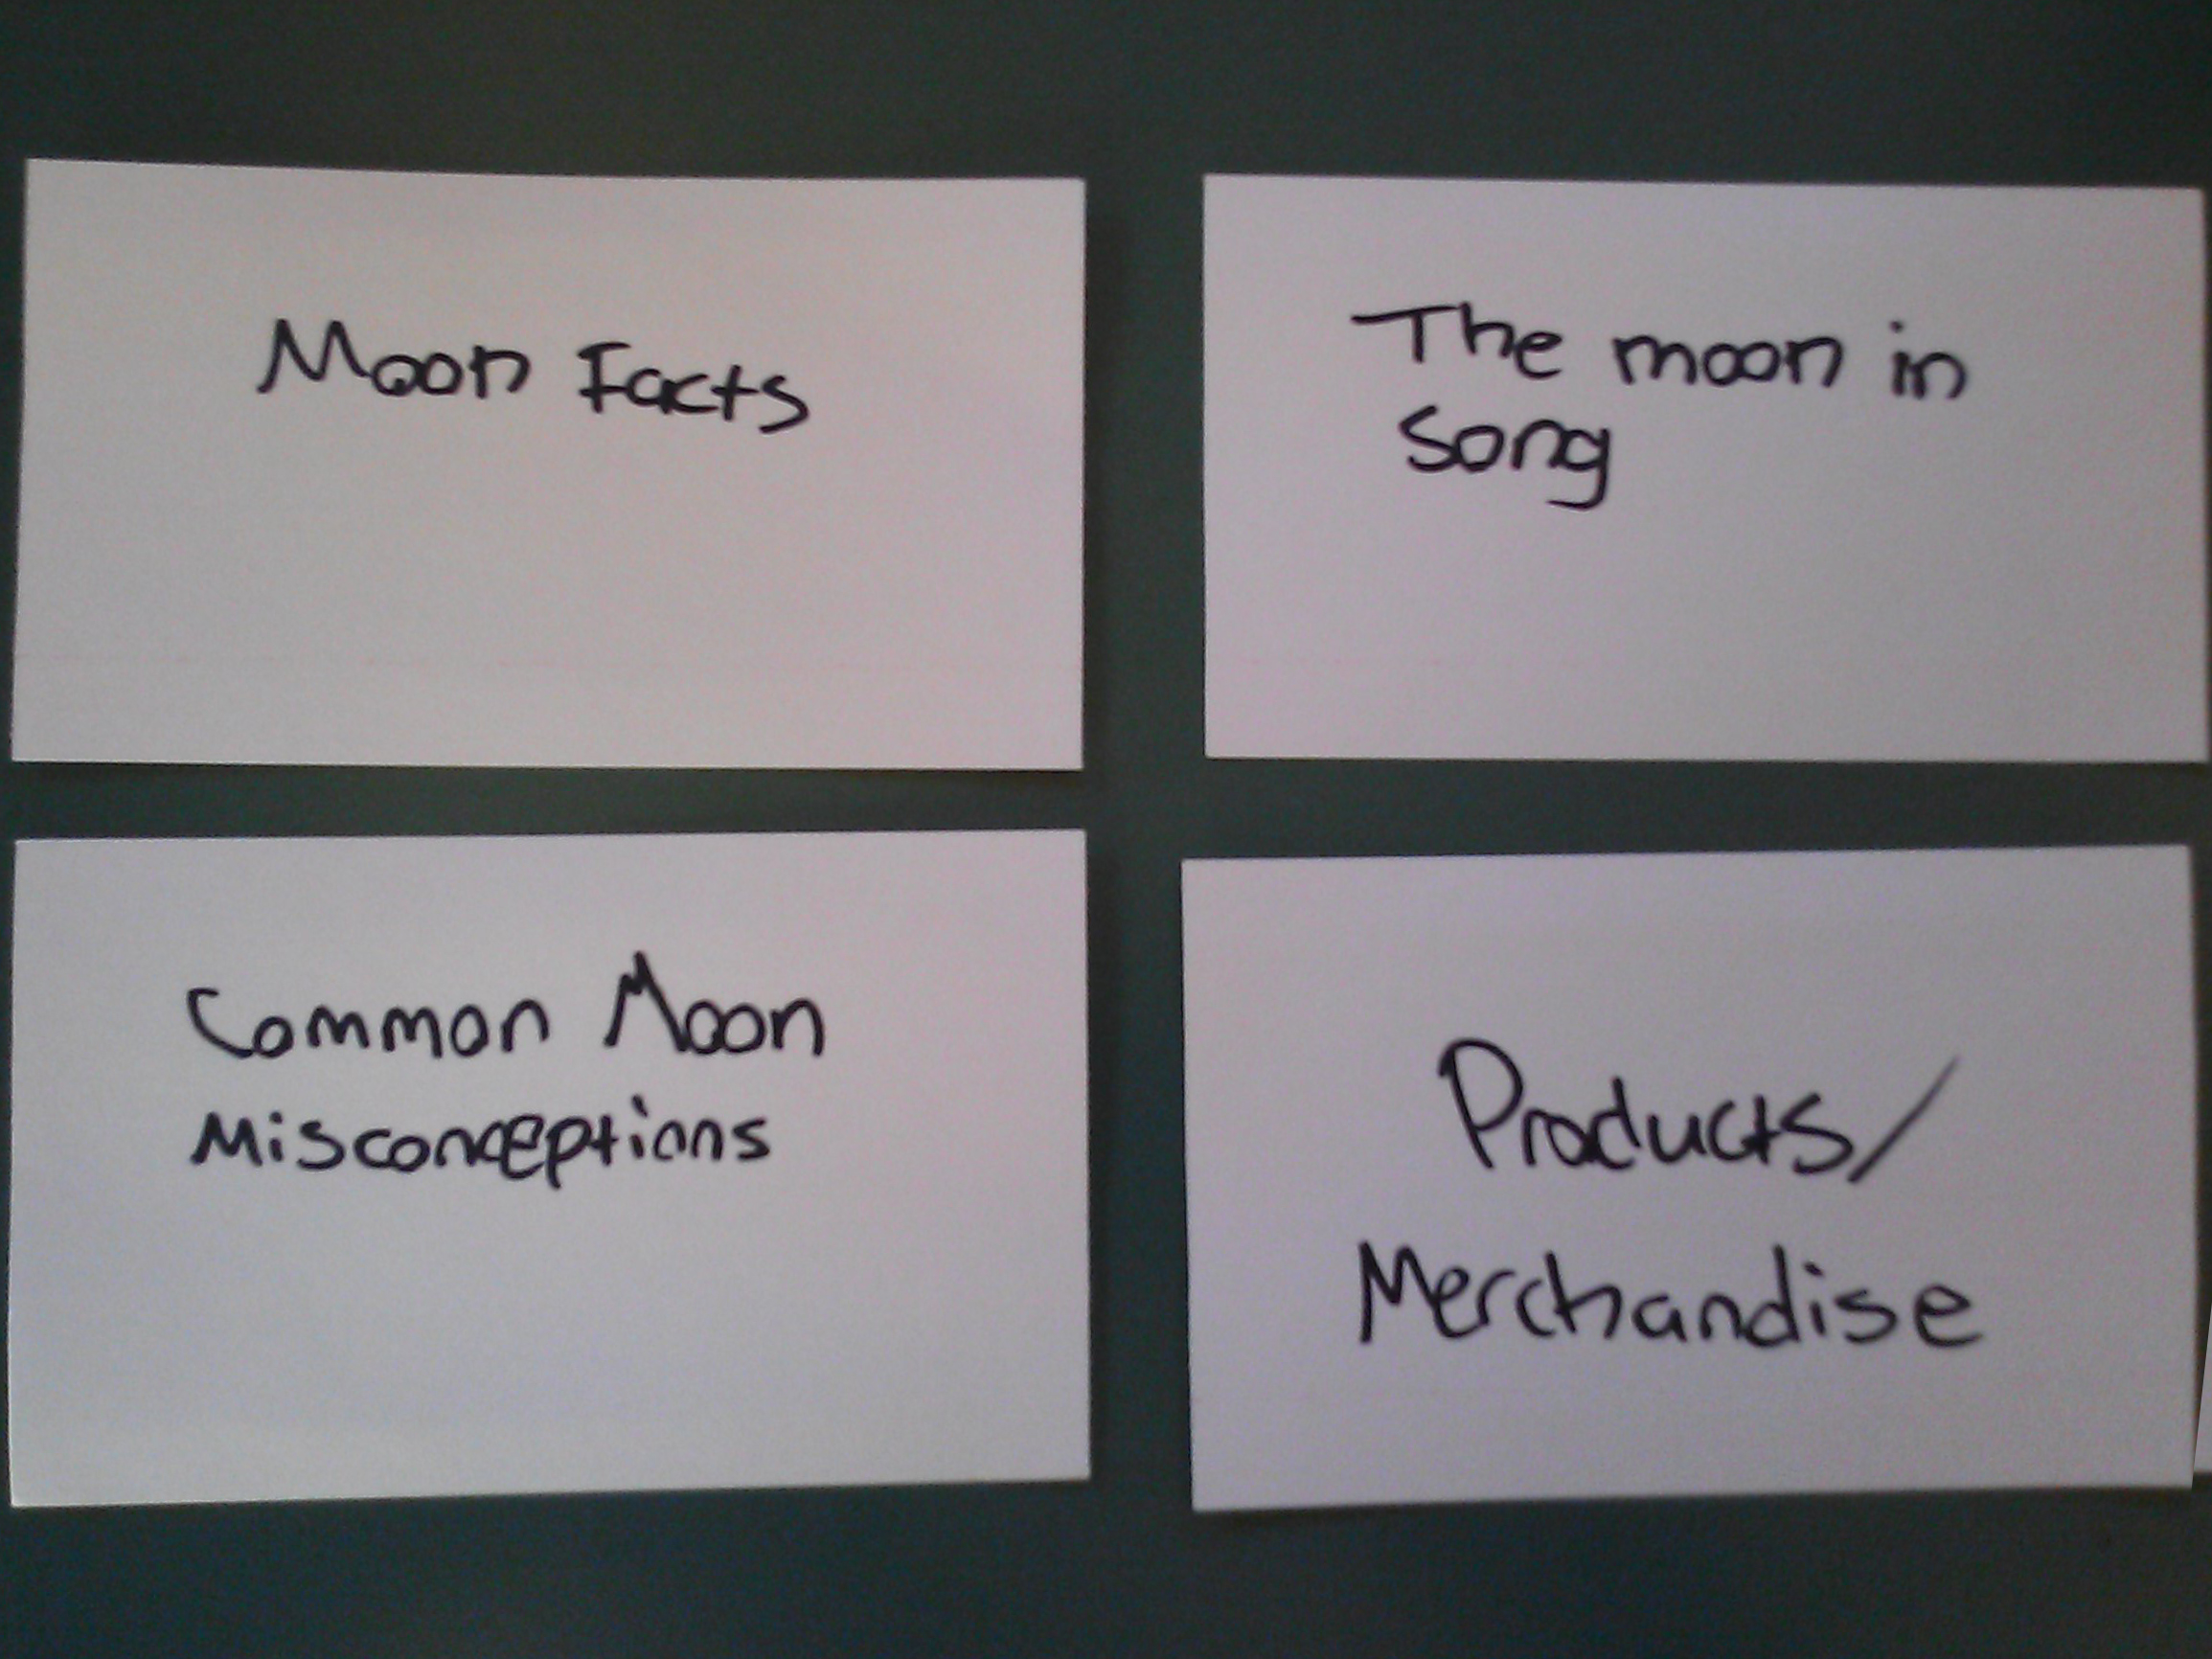 Moon Facts
The moon in
song
Common Moon
Misconceptions
Products/
Merchandise